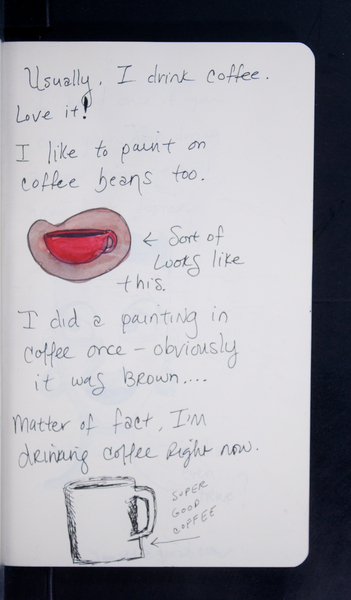 Usually, I drink coffee.
Love it!
I like to paint on
coffee beans too.
← Sort of
Looks like
this.
I did a painting in
coffee once – obviously
it was Brown....
Matter of fact, I'm
drinking coffee Right now.
SUPER
GOOD
COFFEE